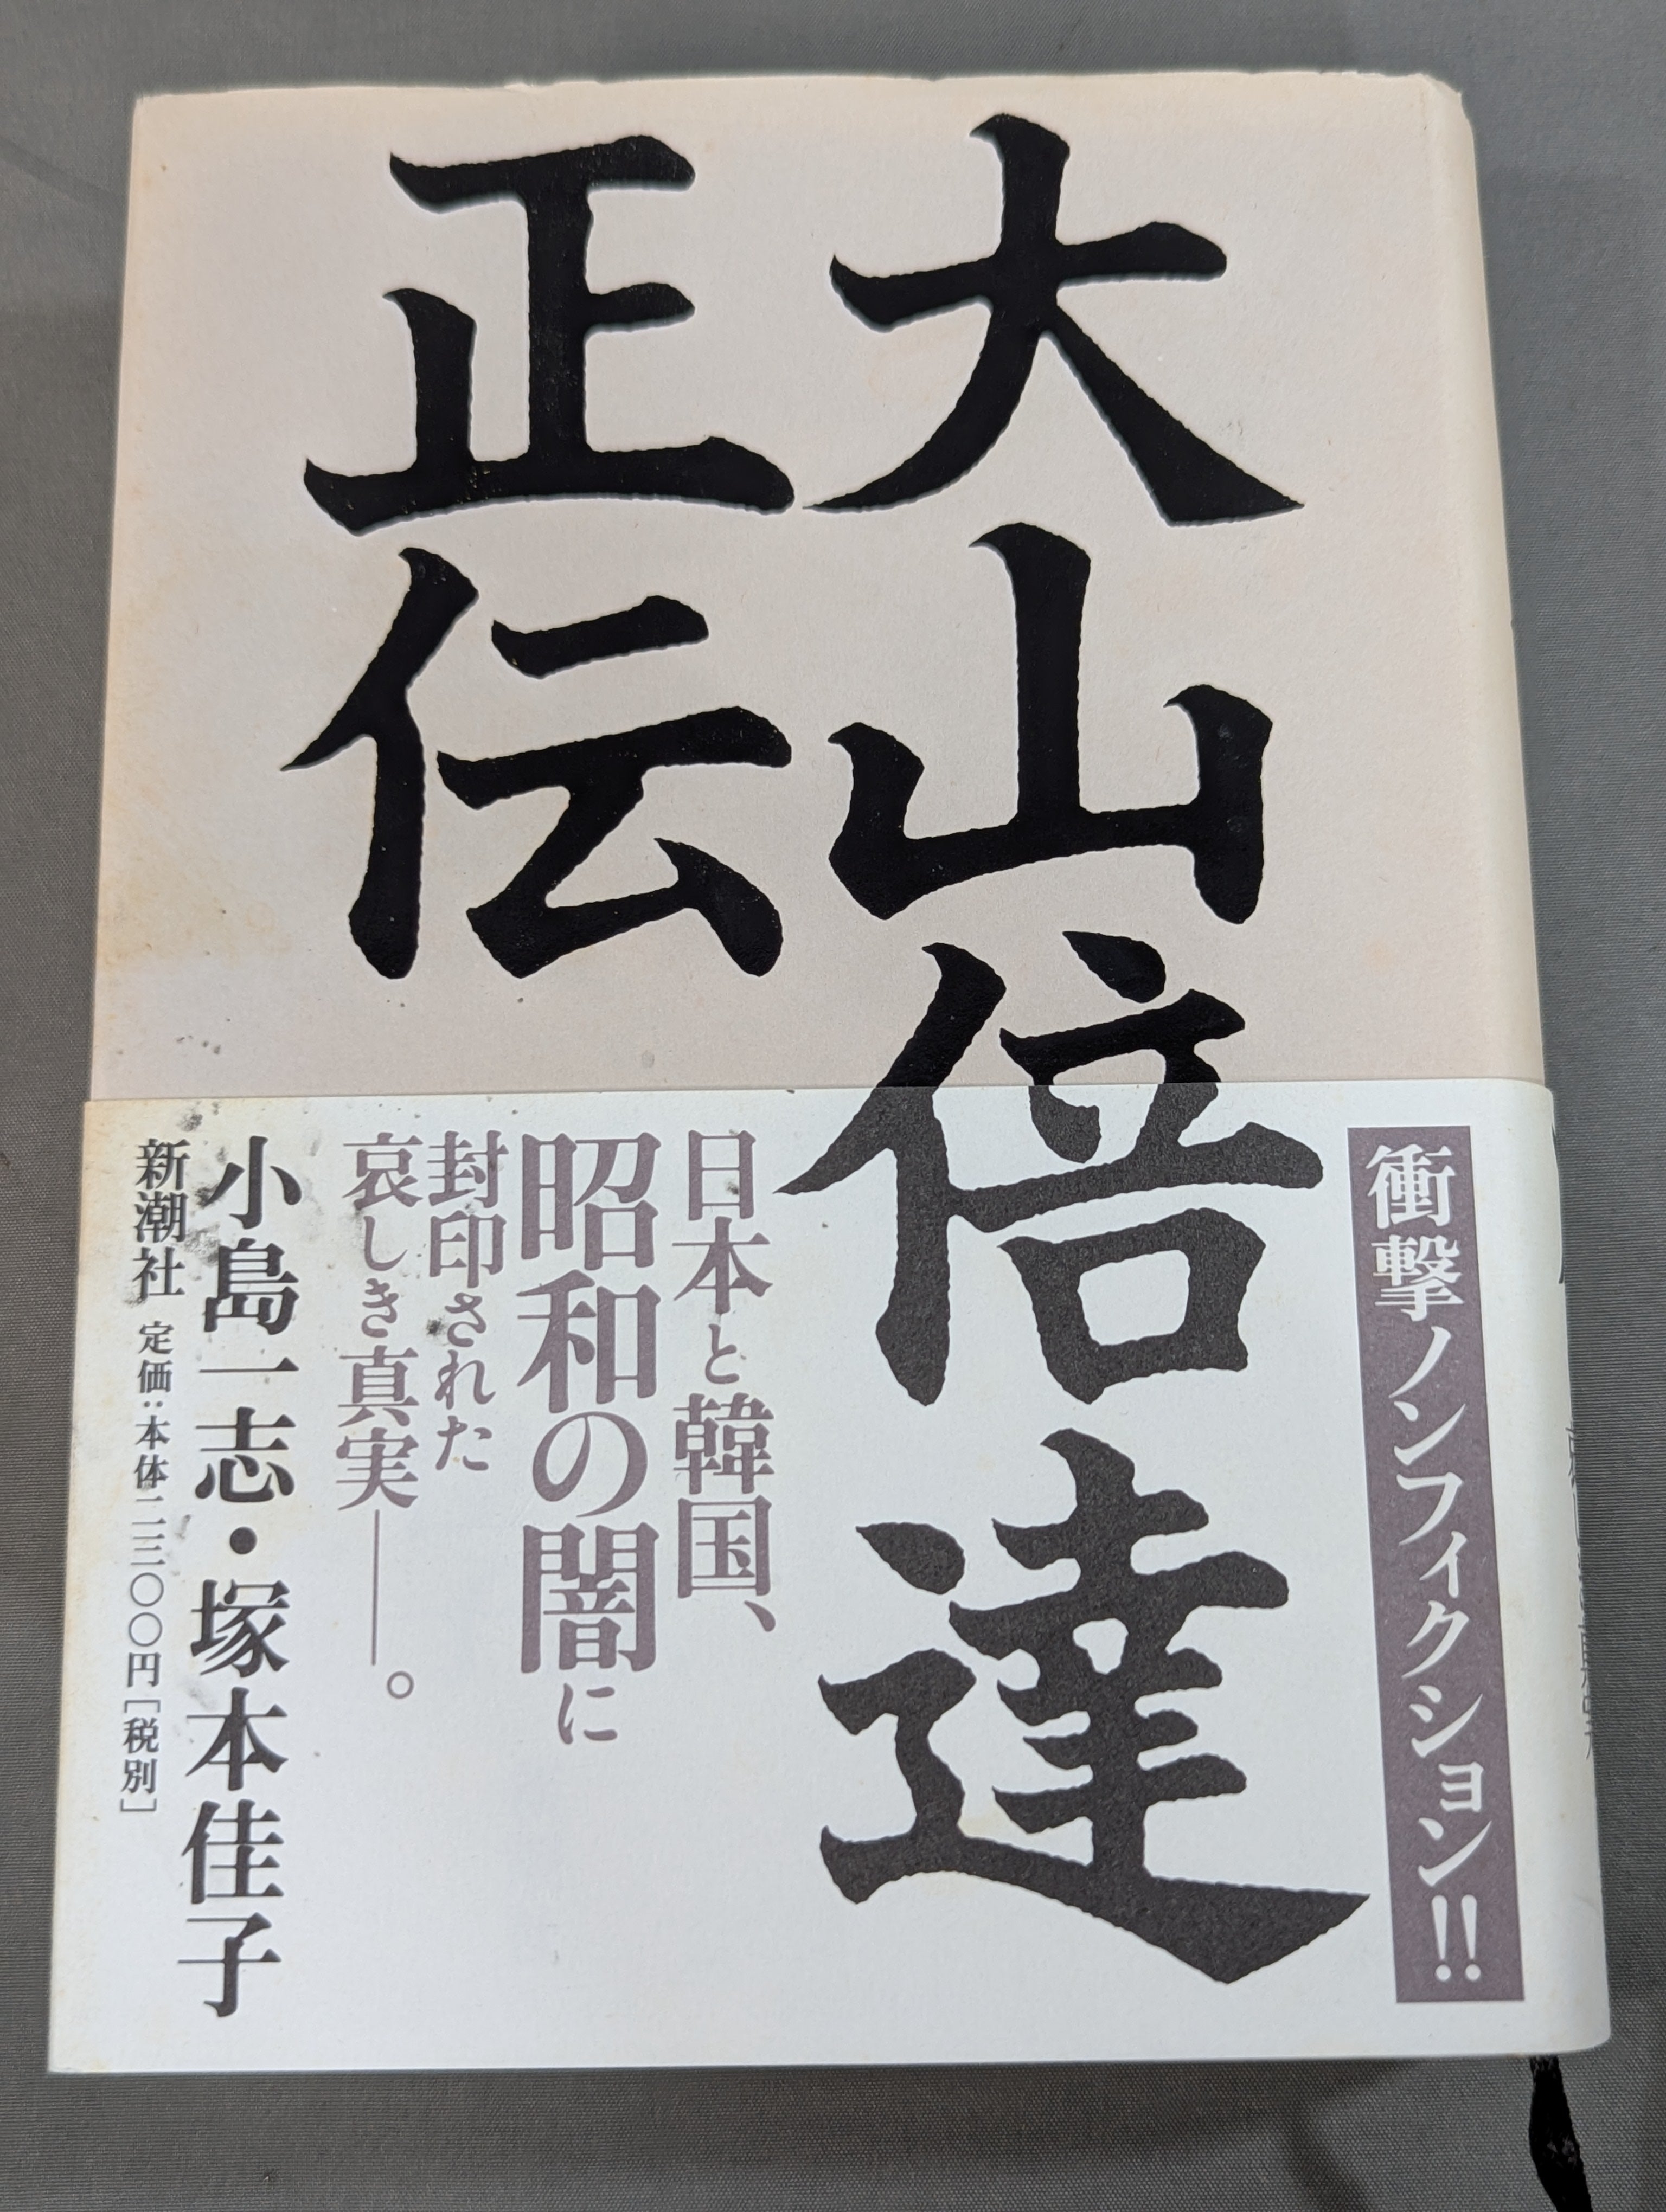 大山倍達
正伝
衝撃ノンフィクション!!
日本と韓国、
昭和の闇に
封印された
哀しき真実――。
小島一志・塚本佳子
新潮社 定価:本体二三〇〇円[税別]